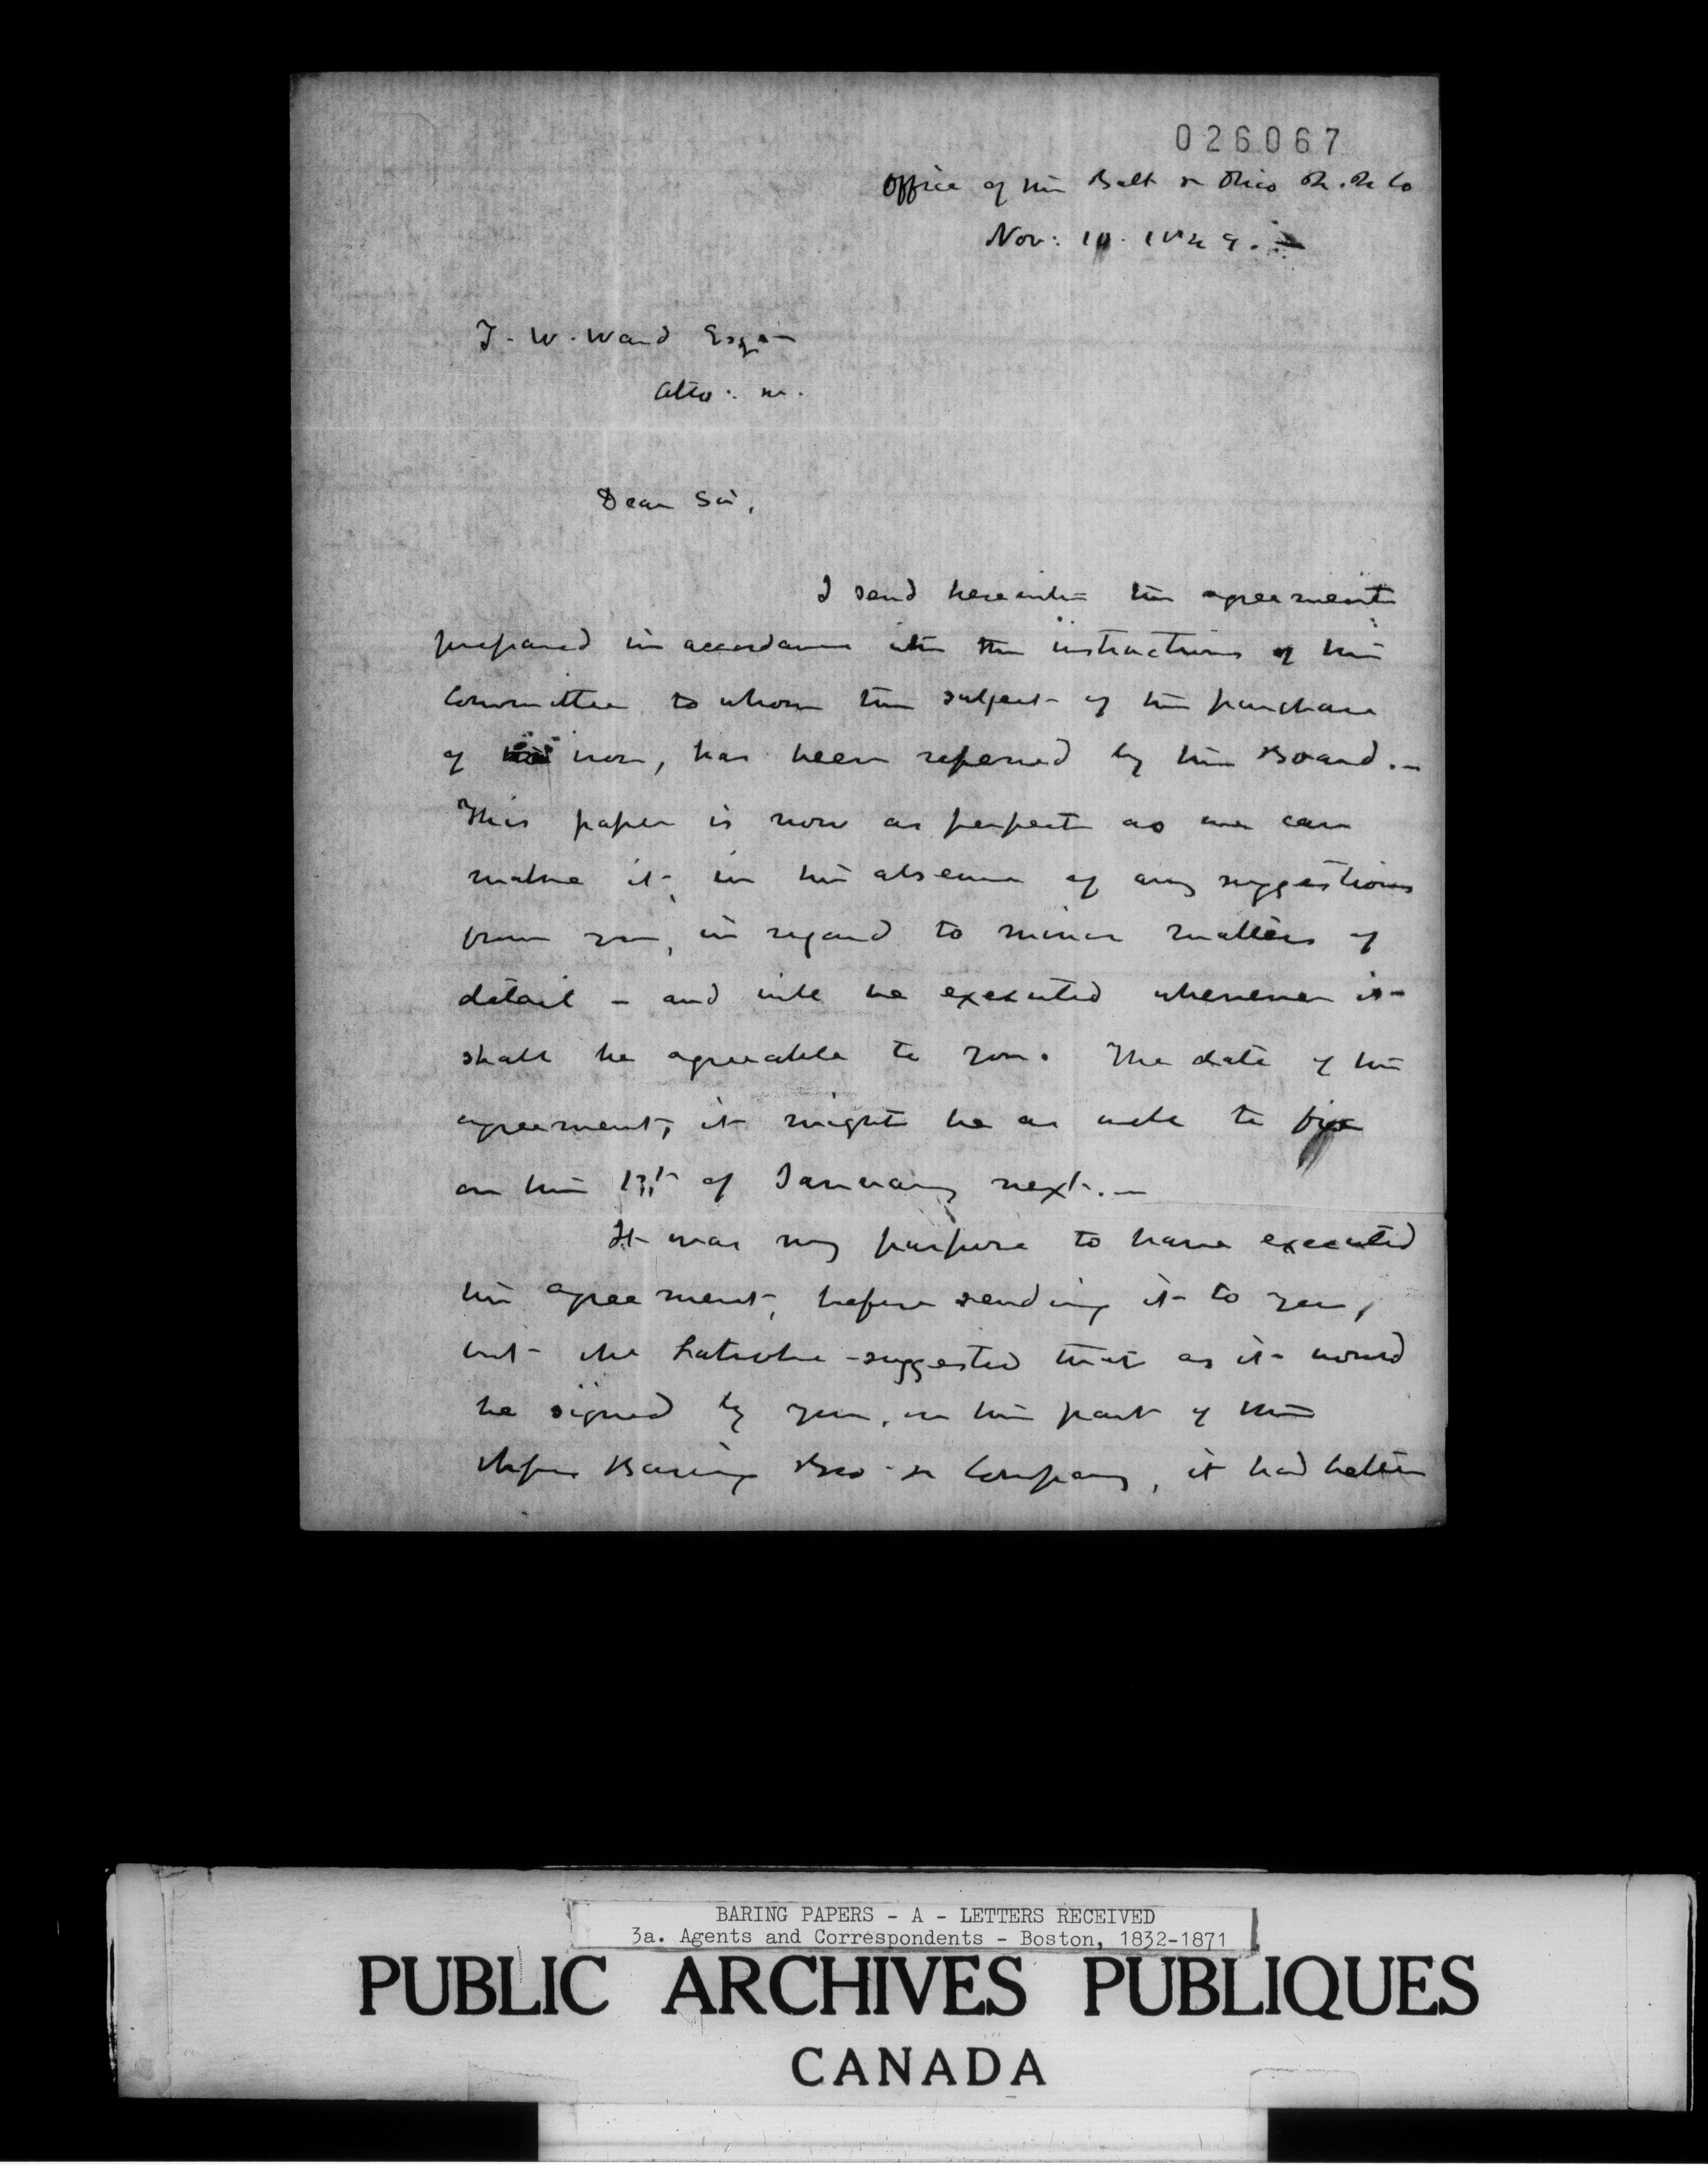 026067
Office of the Balt & Ohio R. R Co
Nov: 10. 1849.
T. W. Ward Esqr
Atto: &c.
Dear Sir,
I send herewith the agreement
prepared in accordance with the instructions of the
Committee to whom the subject of the purchase
of iron, has been referred by the Board.—
This paper is now as perfect as we can
make it, in the absence of any suggestions
from you, in regard to minor matters of
detail – and will be executed whenever it
shall be agreeable to you. The date of the
agreement, it might be as well to fix
on the 1st of January next.—
It was my purpose to have executed
the agreement, before sending it to you,
but Mr Latrobe suggested that as it would
be signed by you, on the part of the
Messrs Baring Bro & Company, it had better
BARING PAPERS - A - LETTERS RECEIVED
3a. Agents and Correspondents - Boston, 1832-1871
PUBLIC ARCHIVES PUBLIQUES
CANADA